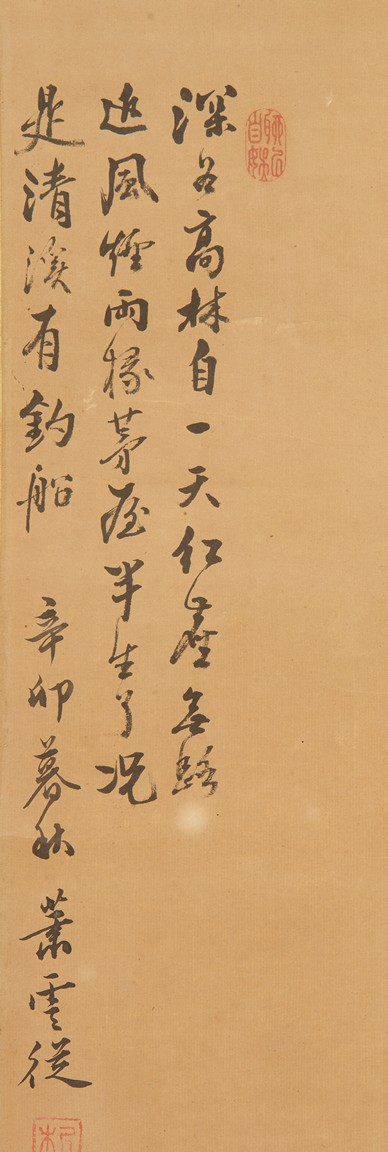 深谷高林自一天紅塵無路
近風煙兩椽茅屋半生了况
是清溪有釣船 辛卯暮秋 蕭雲從